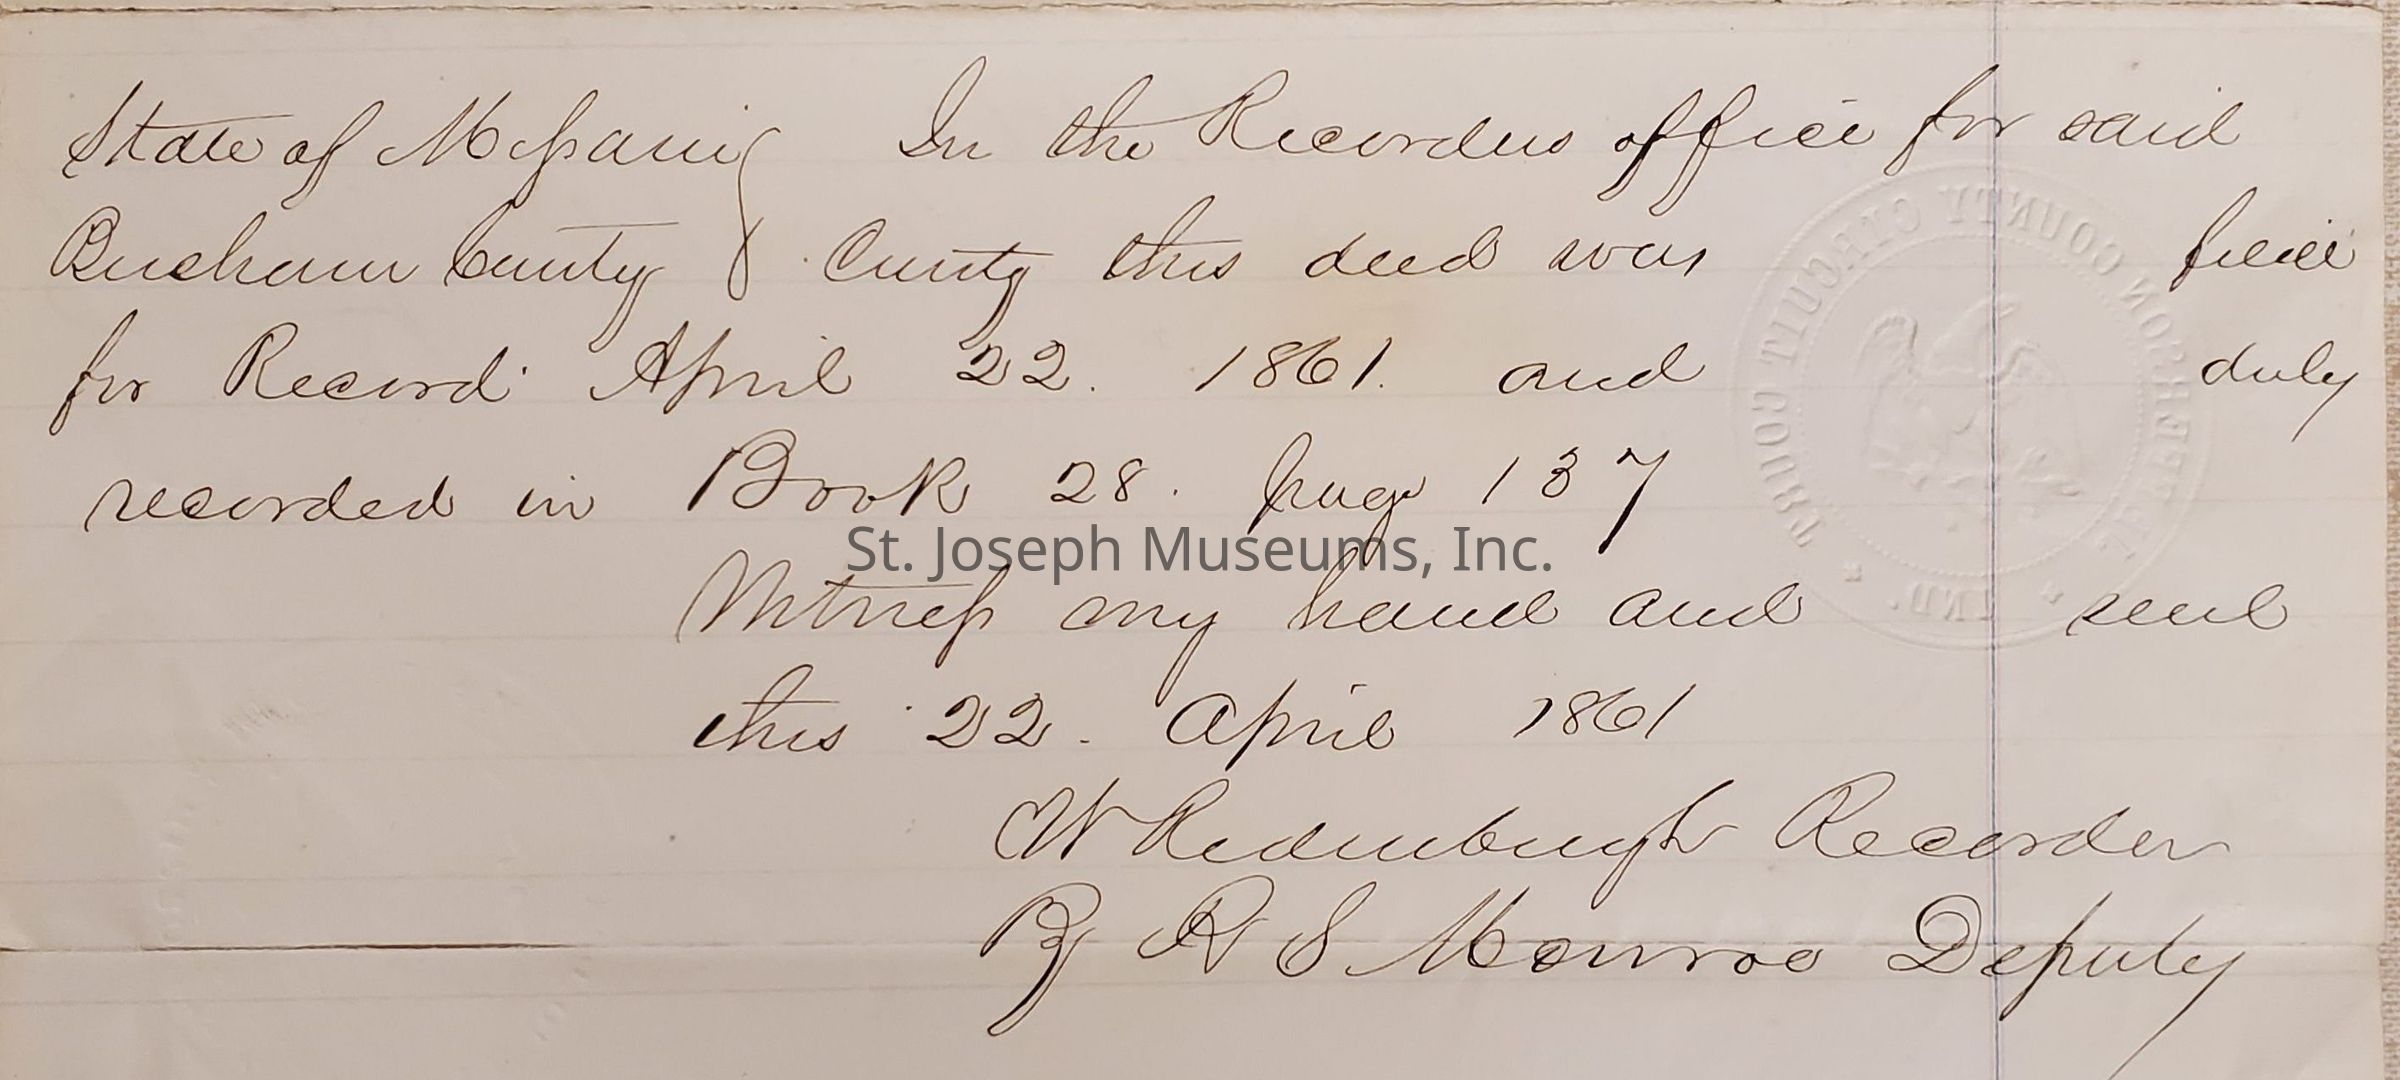 State of Missouri } In the Recorders office for said
Buchanan County } County this deed was filed
for Record April 22. 1861. and duly
recorded in Book 28. page 137
St. Joseph Museums, Inc.
Witness my hand and seal
this 22. April 1861
W Ridenbaugh Recorder
By R S Monroe Deputy
JEFFERSON COUNTY CIRCUIT COURT
IND.